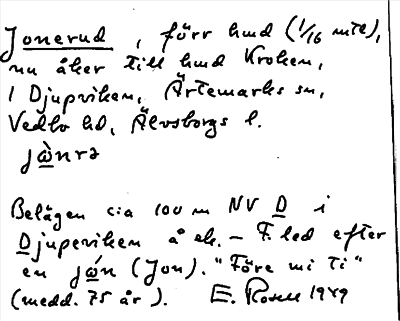 Jonerud, förr hmd (1/16 mtl),
nu åker till hmd Kroken,
i Djupviken, Ärtemarks sn,
Vedbo hd, Älvsborgs l.
jὼnrə
Belägen c:a 100 m NV D i
Djupeviken å ek. – F. led efter
en jώn (Jon). "Före mi ti"
(medd. 75 år). E. Rosell 1949